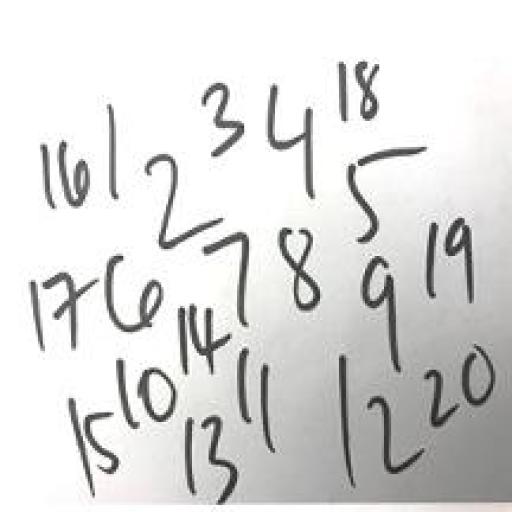 16 1 2 3 4 18 5
17 6 7 8 9 19
15 10 14 13 11 12 20